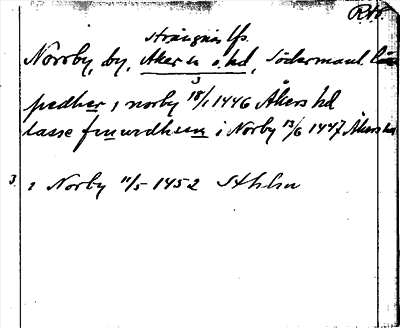 Strängnäs lfs.
Norrby, by, Åkers s. o. hd, Södermanl. län
3
pædher i norby 18/1 1446 Åkers hd
lasse finwidhsson i Norby 13/6 1447 Åkers hd
3. i Norby 11/5 1452 Sthlm